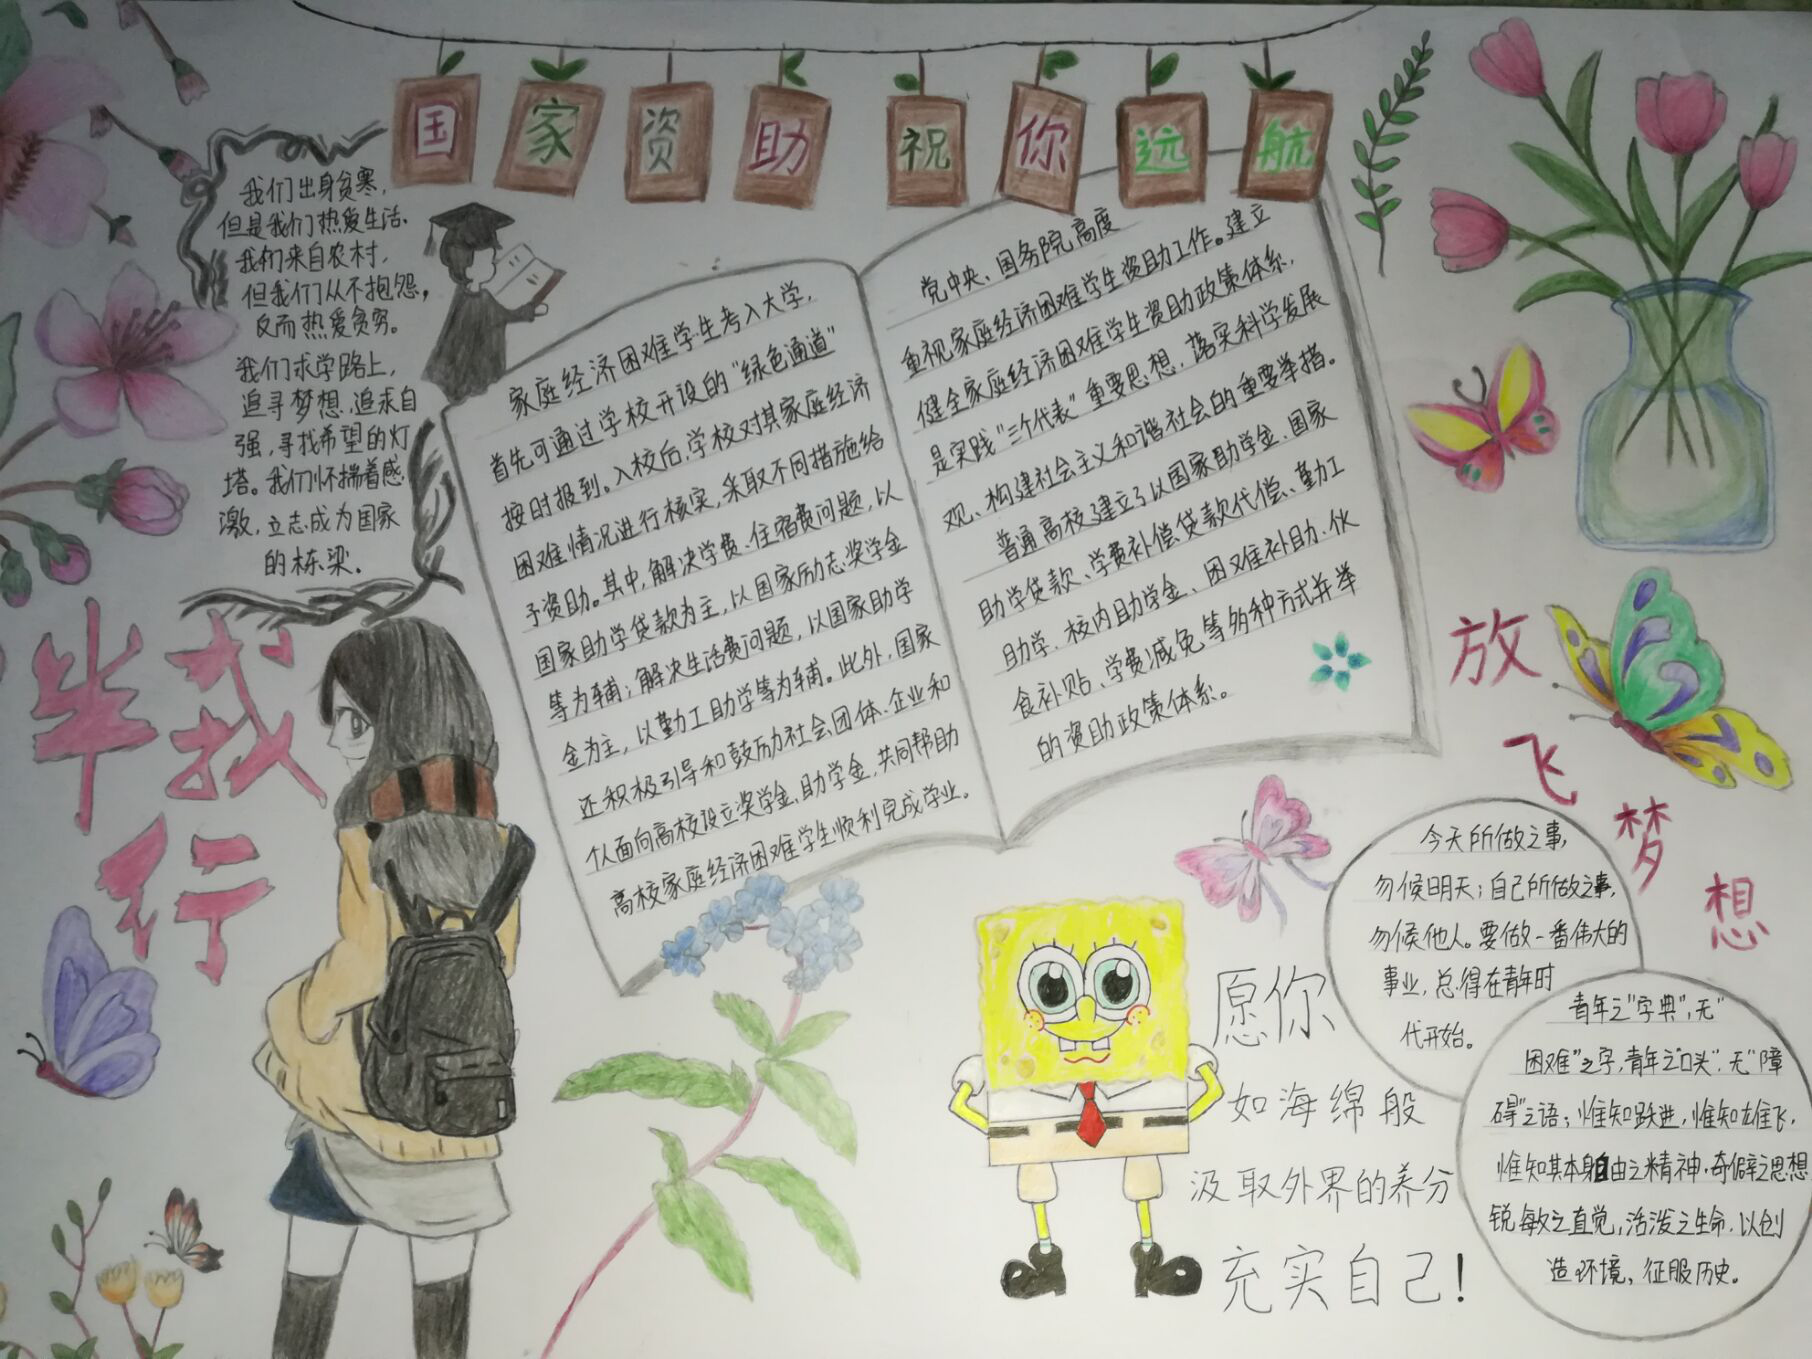 国家资助祝你远航
我们出身贫寒，
但是我们热爱生活．
我们来自农村，
但我们从不抱怨，
反而热爱贫穷。
我们求学路上，
追寻梦想．追求自
强，寻找希望的灯
塔。我们怀揣着感
激，立志成为国家
的栋梁．
伴我
行
家庭经济困难学生考入大学，
首先可通过学校开设的"绿色通道"
按时报到。入校后，学校对其家庭经济
困难情况进行核实，采取不同措施给
予资助。其中，解决学费、住宿费问题，以
国家助学贷款为主，以国家励志奖学金
等为辅；解决生活费问题，以国家助学
金为主，以勤工助学等为辅。此外，国家
还积极引导和鼓励社会团体、企业和
个人面向高校设立奖学金、助学金，共同帮助
高校家庭经济困难学生顺利完成学业。
党中央、国务院高度
重视家庭经济困难学生资助工作。建立
健全家庭经济困难学生资助政策体系，
是实践"三个代表"重要思想，落实科学发展
观、构建社会主义和谐社会的重要举措。
普通高校建立了以国家助学金、国家
助学贷款、学费补偿贷款代偿、勤工
助学、校内助学金、困难补助、伙
食补贴、学费减免等多种方式并举
的资助政策体系。
放
飞
梦
想
今天所做之事，
勿候明天；自己所做之事，
勿候他人。要做一番伟大的
事业，总得在青年时
代开始。
青年之"字典"，无"
困难"之字，青年之"口头"，无"障
碍"之语；惟知跃进，惟知雄飞，
惟知其本身自由之精神．奇僻之思想
锐敏之直觉，活泼之生命．以创
造环境，征服历史。
愿你
如海绵般
汲取外界的养分
充实自己！